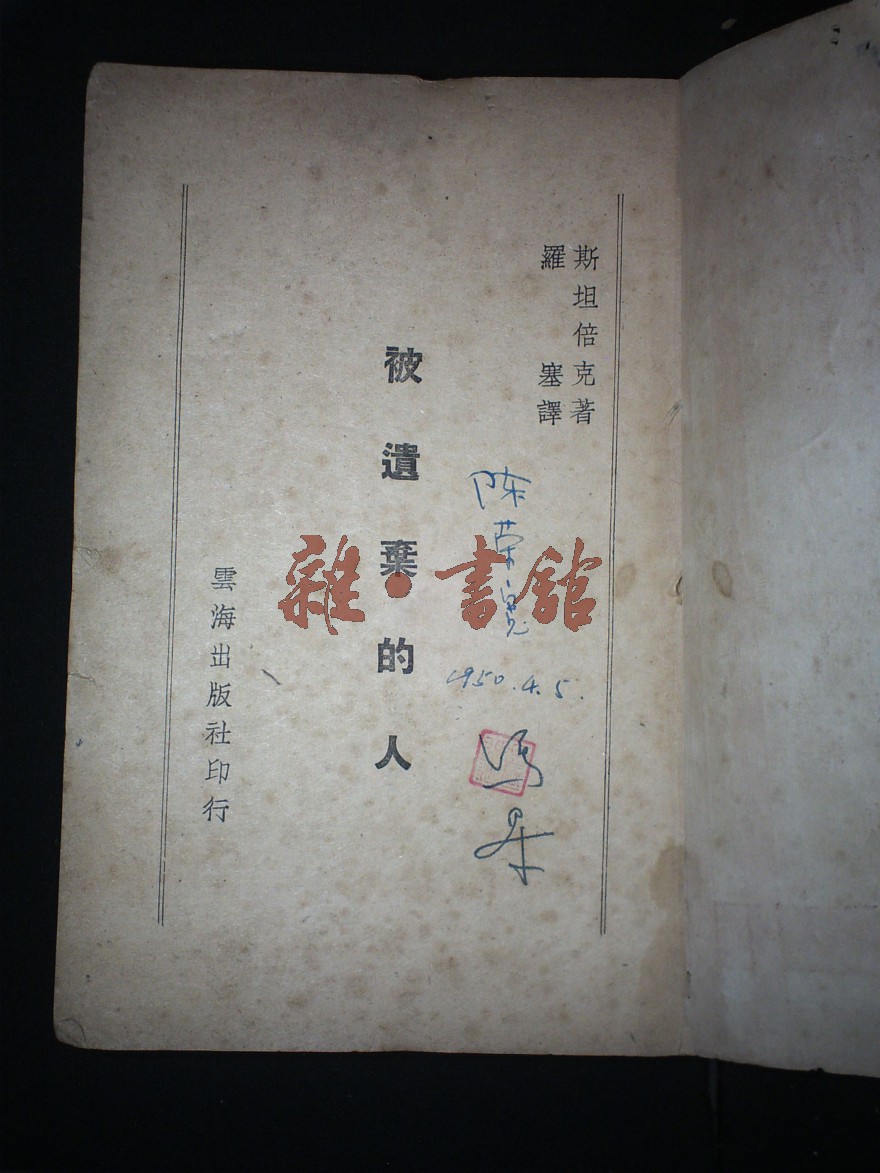 斯坦倍克著
羅塞譯
被遺棄的人
雲海出版社印行
陈荣
1950.4.5.
雜·書館